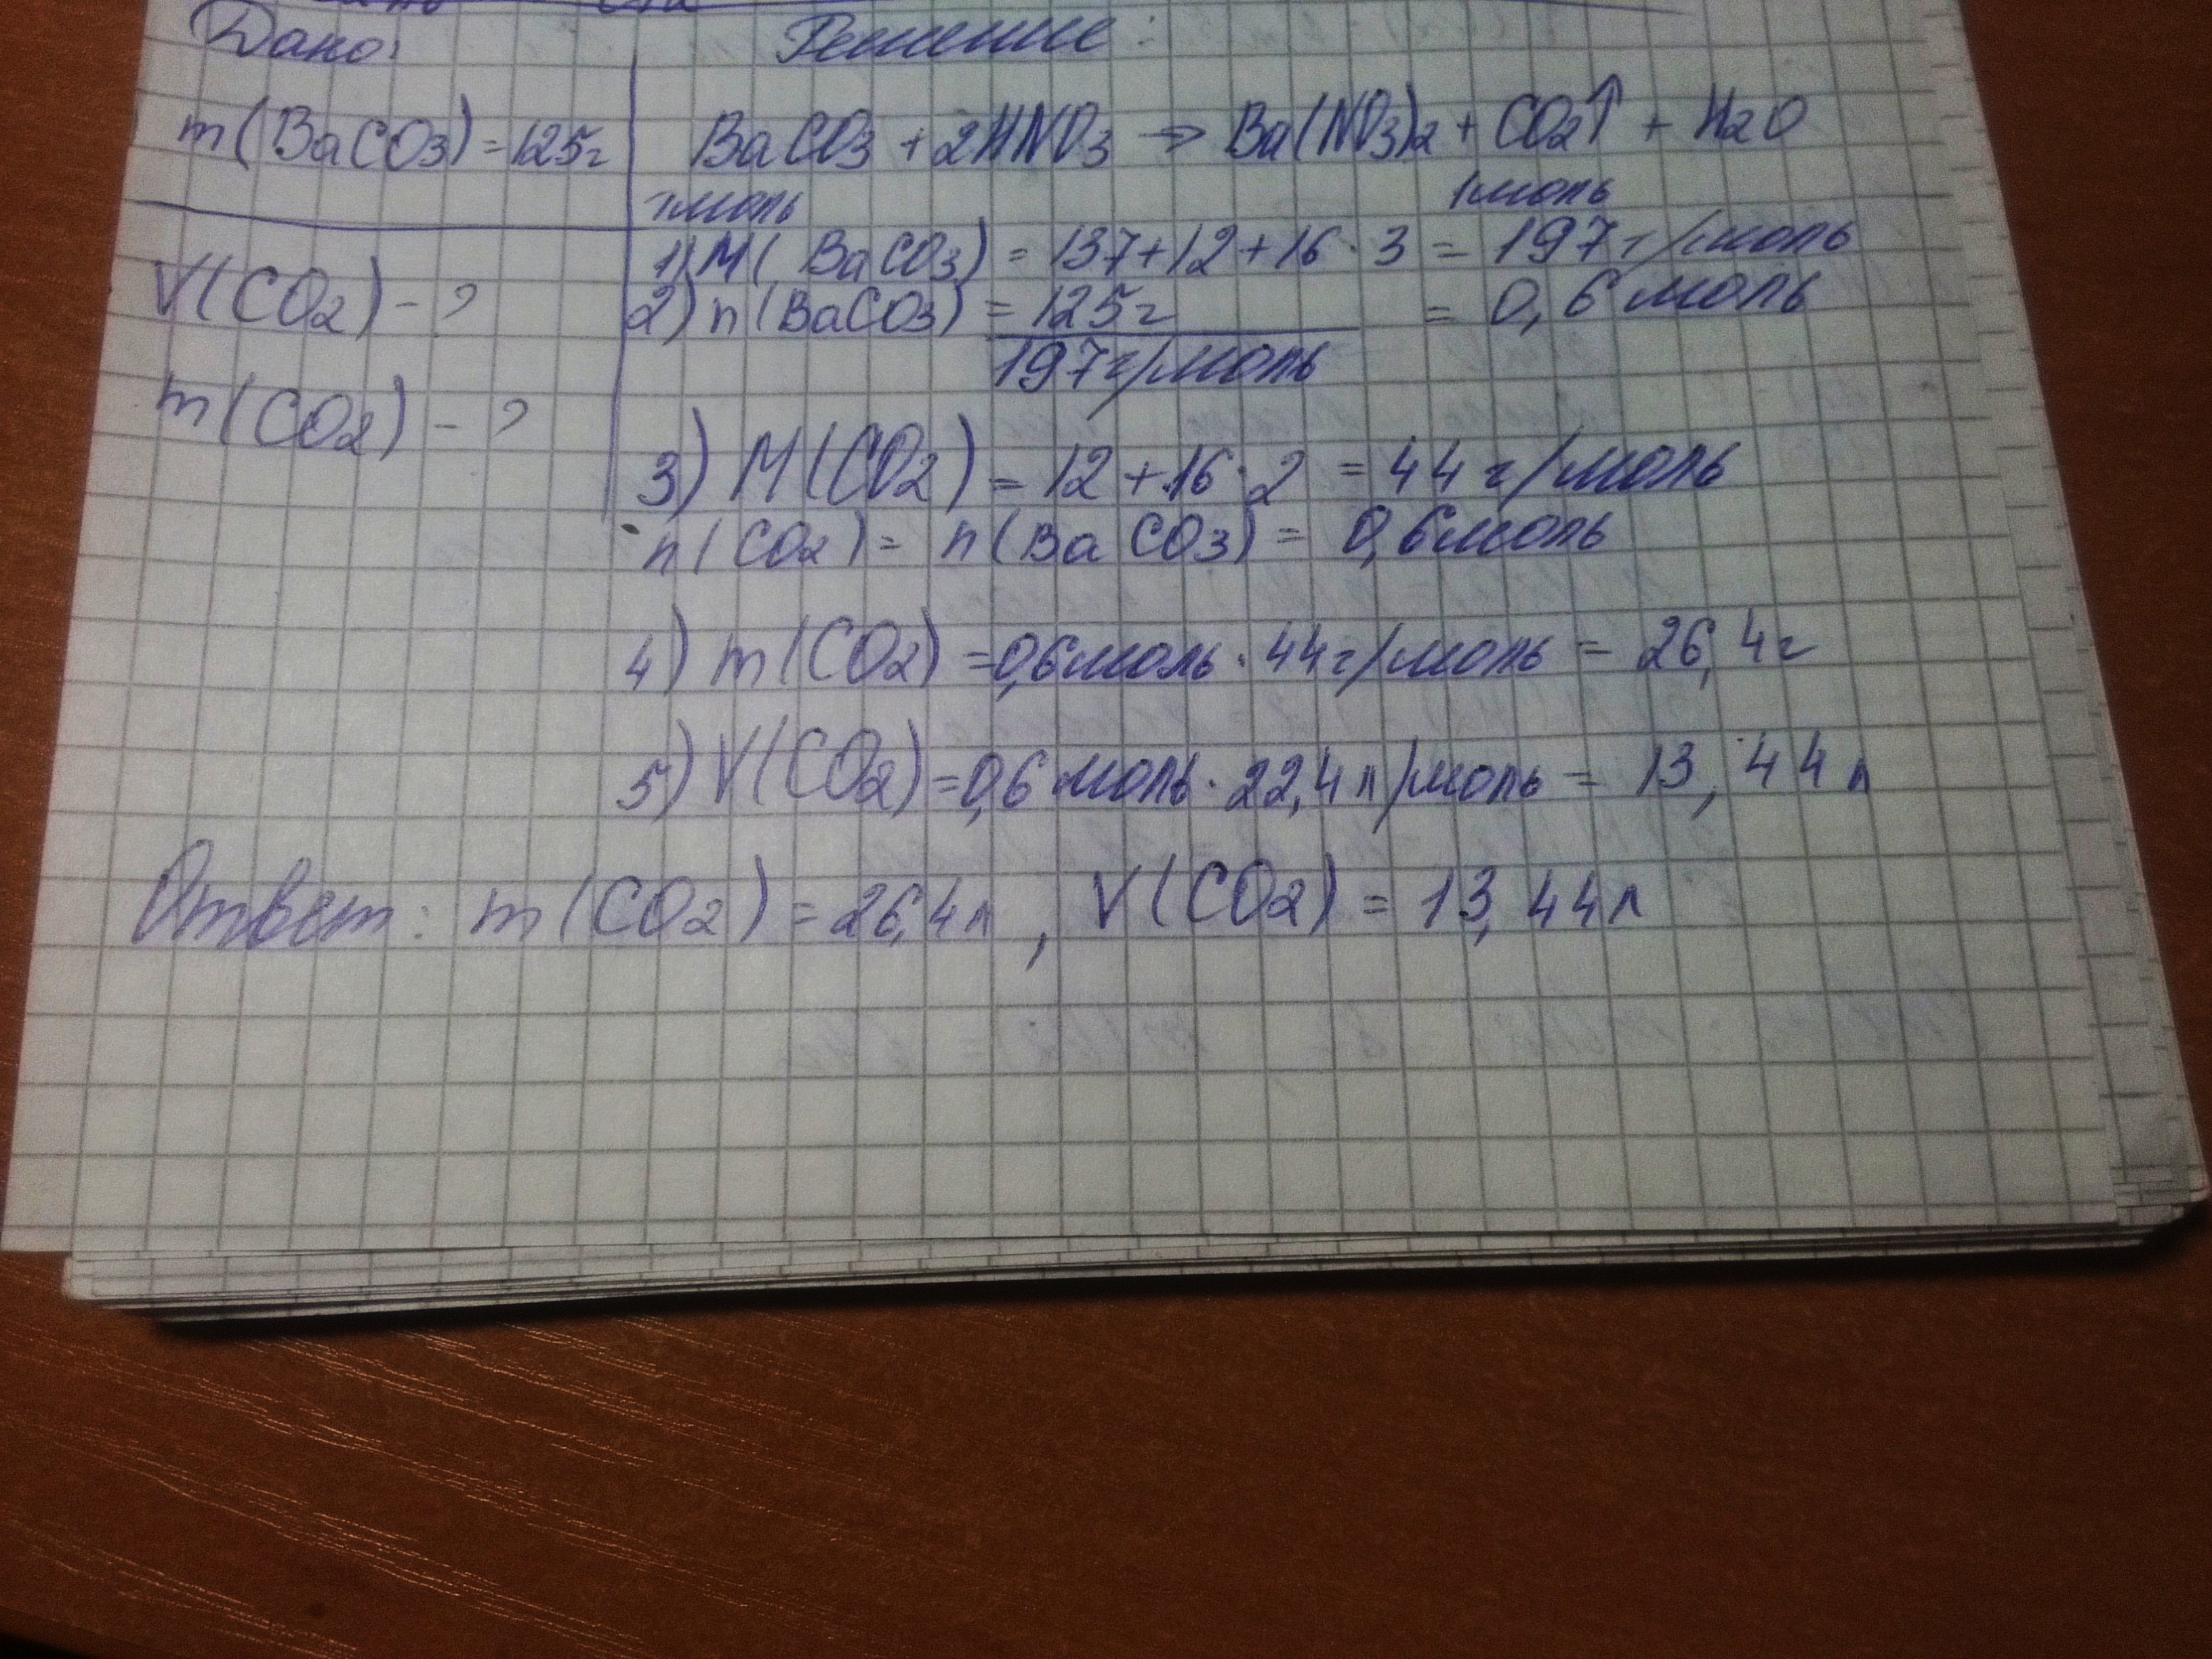 Дано: Решение:
m(BaCO3)=125г BaCO3 + 2HNO3 → Ba(NO3)2 + CO2↑ + H2O
1моль 1моль
1) M(BaCO3) = 137+12+16·3 = 197 г/моль
V(CO2) - ? 2) n(BaCO3) = 125г = 0,6 моль
197г/моль
m(CO2) - ? 3) M(CO2) = 12+16·2 = 44 г/моль
n(CO2) = n(BaCO3) = 0,6моль
4) m(CO2) =0,6моль·44г/моль = 26,4г
5) V(CO2)=0,6 моль·22,4л/моль = 13,44л
Ответ: m(CO2) = 26,4л, V(CO2) = 13,44л